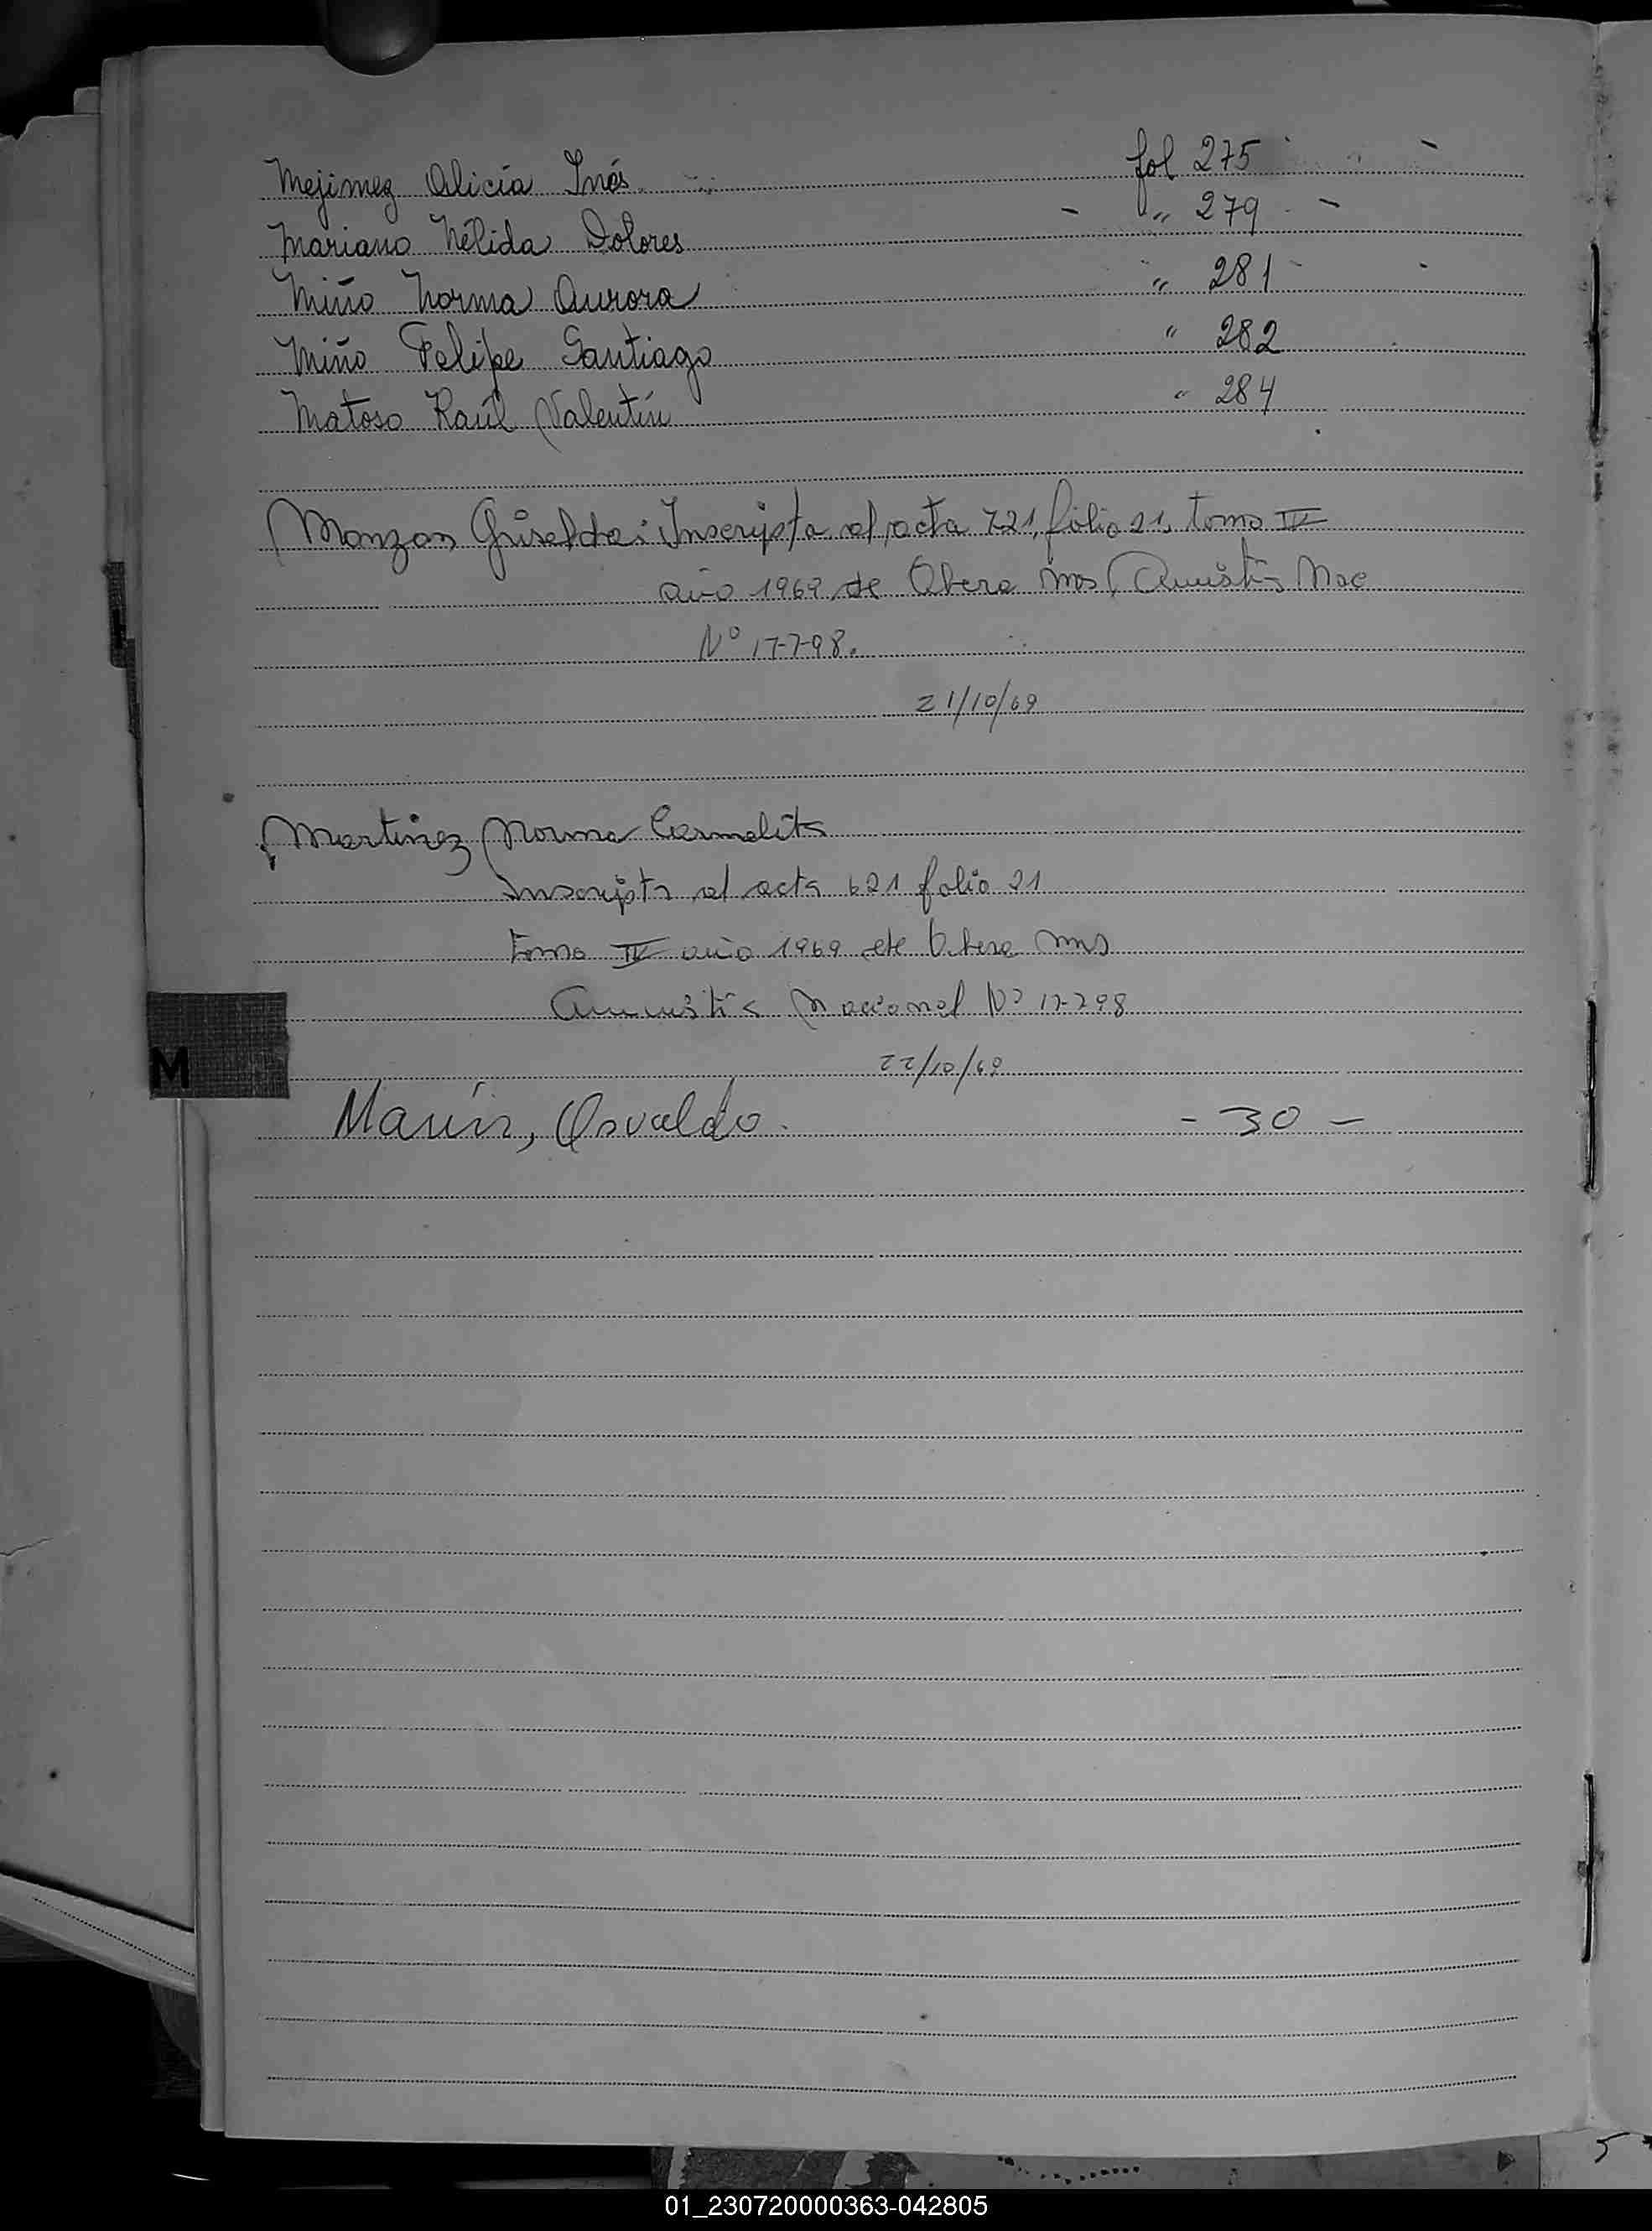 Mejimez Alicia Inés fol 275
Mariano Nélida Dolores - " 279 -
Miño Norma Aurora " 281 -
Miño Felipe Santiago " 282
Matoso Raúl Valentín " 284
Monzon Griselda: Inscripta al acta 721, folio 21, tomo IV
año 1969 de Obera Mns Amnistía Nac
Nº 17798.
21/10/69
Martinez Norma Carmelita
Inscripta al acta 621 folio 21
Tomo IV año 1969 de Obera Mns
Amnistía Nacional Nº 17798
22/10/69
M
Marín, Osvaldo. - 30 -
01_230720000363-042805